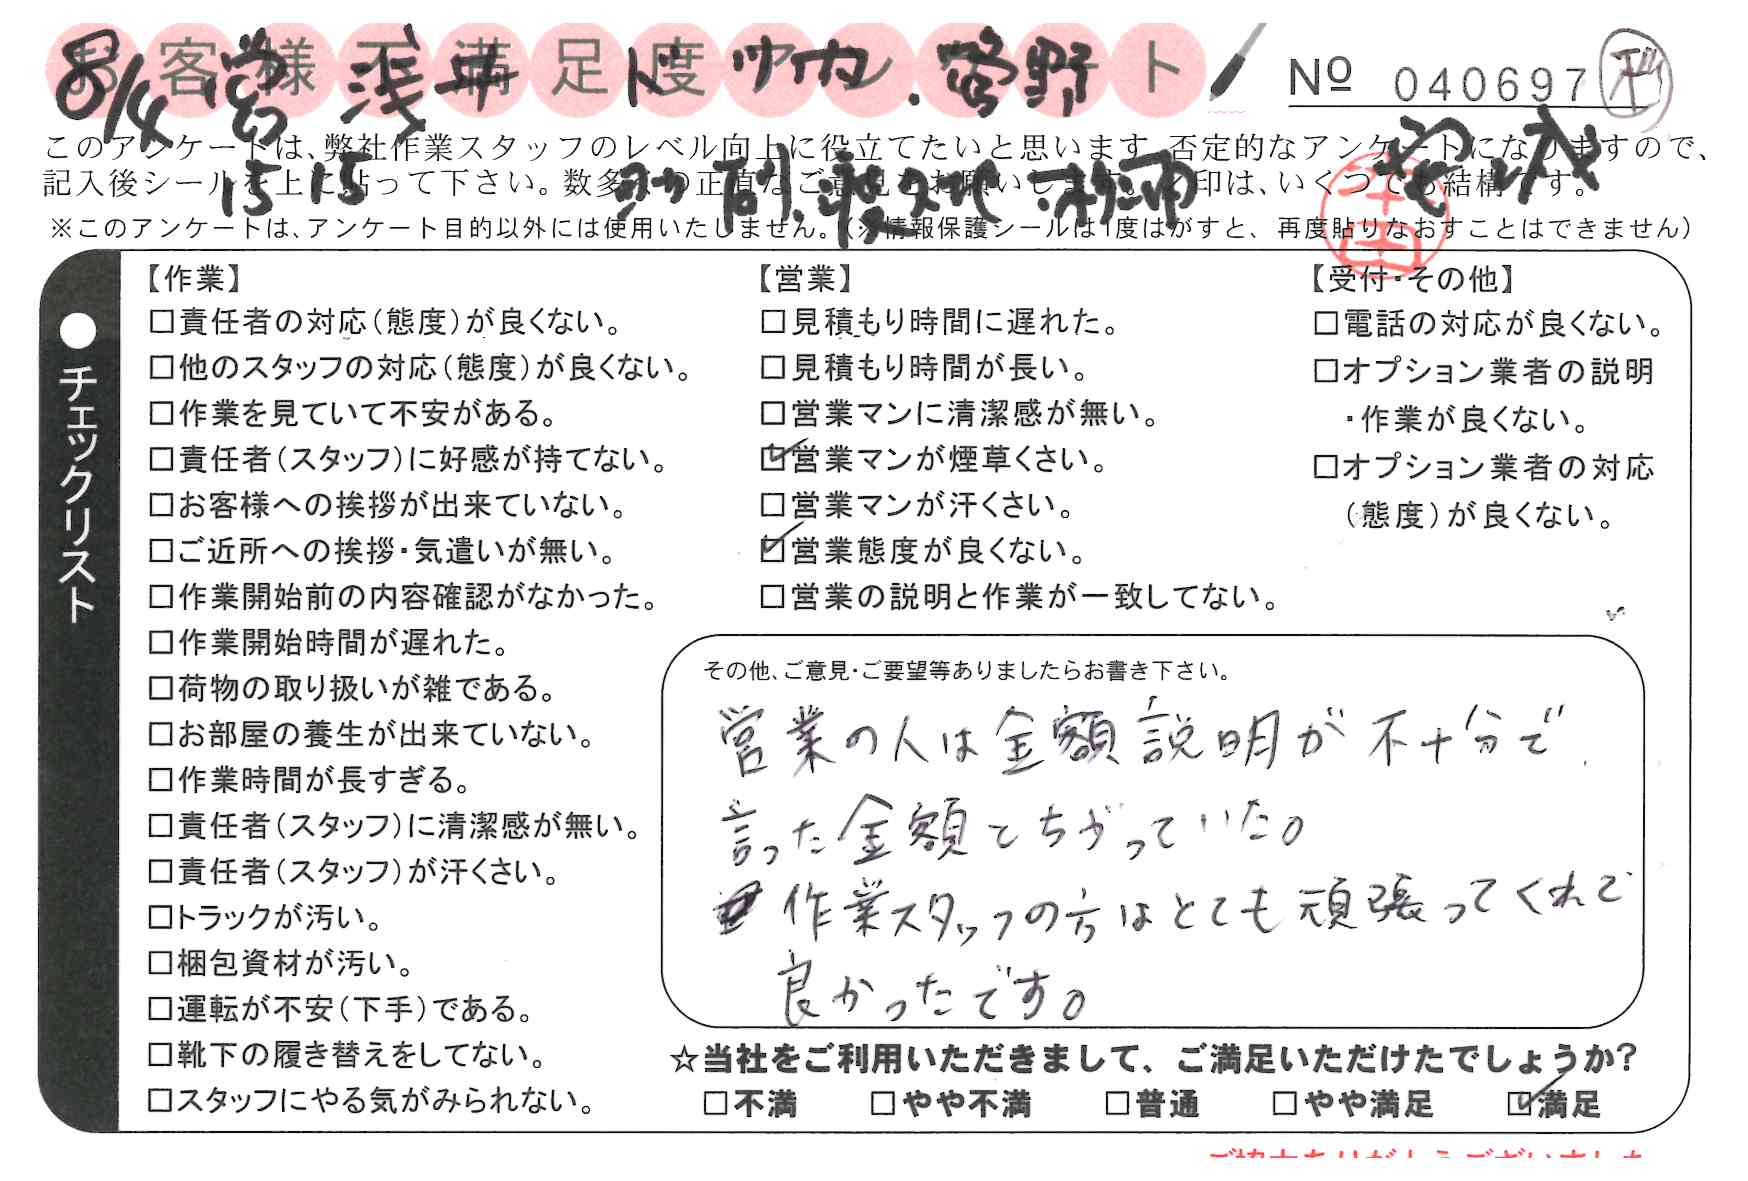 お客様不満足度アンケート
8/4 営 浅井 ド ツカ. 菅野
№ 040697
このアンケートは、弊社作業スタッフのレベル向上に役立てたいと思います。否定的なアンケートになりますので、
記入後シールを上に貼って下さい。数多くの正直なご意見をお願いします。レ印は、いくつでも結構です。
1515 助
※このアンケートは、アンケート目的以外には使用いたしません。(※情報保護シールは1度はがすと、再度貼りなおすことはできません)
●チェックリスト
【作業】
□責任者の対応(態度)が良くない。
□他のスタッフの対応(態度)が良くない。
□作業を見ていて不安がある。
□責任者(スタッフ)に好感が持てない。
□お客様への挨拶が出来ていない。
□ご近所への挨拶・気遣いが無い。
□作業開始前の内容確認がなかった。
□作業開始時間が遅れた。
□荷物の取り扱いが雑である。
□お部屋の養生が出来ていない。
□作業時間が長すぎる。
□責任者(スタッフ)に清潔感が無い。
□責任者(スタッフ)が汗くさい。
□トラックが汚い。
□梱包資材が汚い。
□運転が不安(下手)である。
□靴下の履き替えをしてない。
□スタッフにやる気がみられない。
【営業】
□見積もり時間に遅れた。
□見積もり時間が長い。
□営業マンに清潔感が無い。
☑営業マンが煙草くさい。
□営業マンが汗くさい。
☑営業態度が良くない。
□営業の説明と作業が一致してない。
【受付・その他】
□電話の対応が良くない。
□オプション業者の説明
・作業が良くない。
□オプション業者の対応
(態度)が良くない。
その他、ご意見・ご要望等ありましたらお書き下さい。
営業の人は金額説明が不十分で
言った金額とちがっていた。
作業スタッフの方はとても頑張ってくれて
良かったです。
☆当社をご利用いただきまして、ご満足いただけたでしょうか?
□不満 □やや不満 □普通 □やや満足 ☑満足
ご協力ありがとうございました